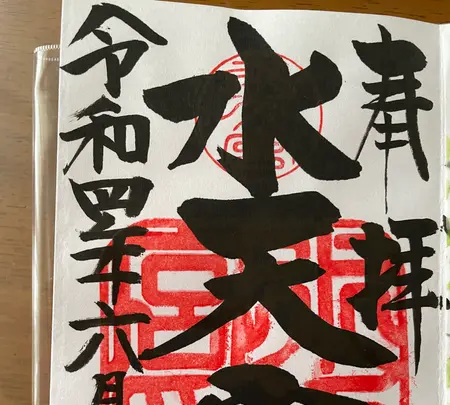 奉拝
水天
令和四年六月